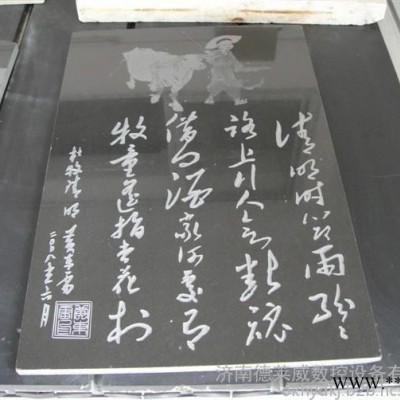 清明时节雨纷々
路上行人欲断魂
借问酒家何处有
牧童遥指杏花村
杜牧清明
二〇〇八年六月
济南德莱威数控设备有
www.**